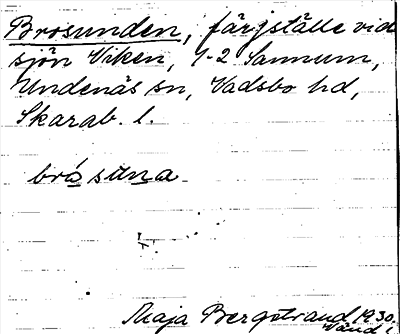 Brosunden, färjställe vid
sjön Viken, 1-2 Sannum,
Undenäs sn, Vadsbo hd,
Skarab. l.
brósuna
Maja Bergstrand 1930.
Vänd!